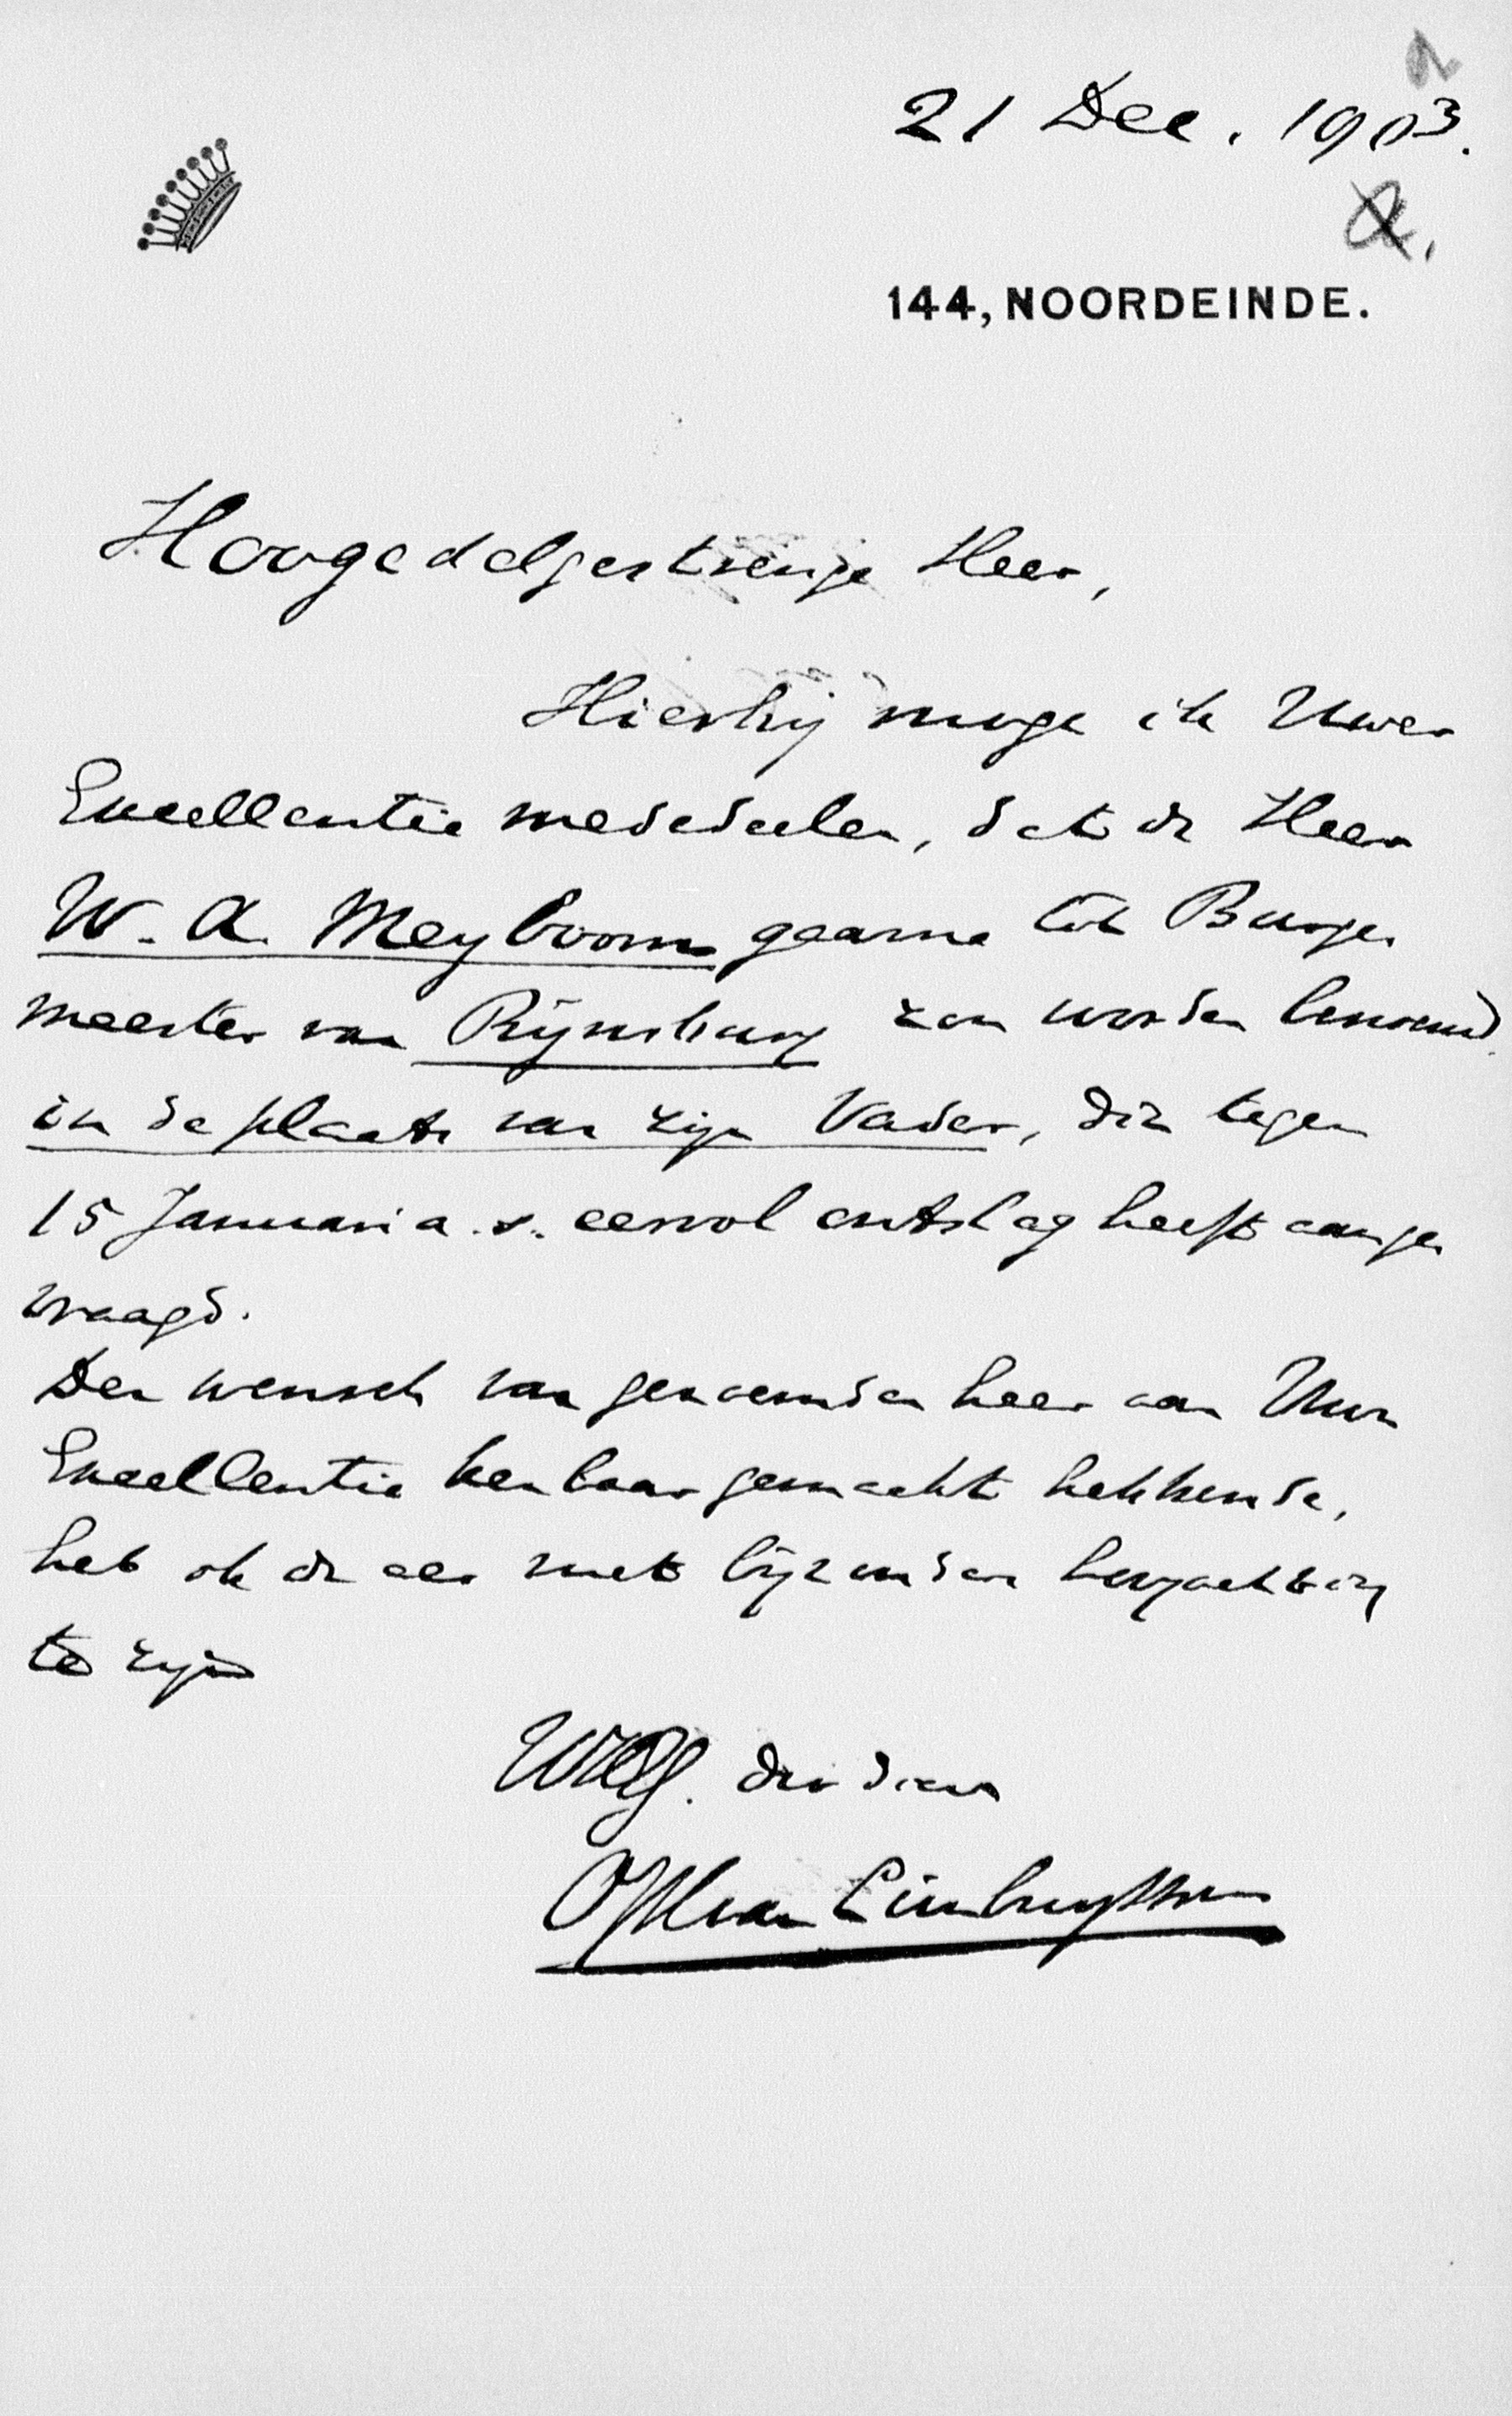 21 Dec. 1903.
144, NOORDEINDE.
Hoogedelgestrenge Heer,
Hierbij moge ik Uwer
Excellentie mededeelen, dat de Heer
W. A. Meyboom gaarne tot Burge
meester van Rijnsburg zou worden benoemd
in de plaats van zijn Vader, die tegen
15 Januari a.s. eervol ontslag heeft aange
vraagd.
Den wensch van genoemden heer aan Uwe
Excellentie kenbaar gemaakt hebbende,
heb ik de eer met bijzondere hoogachting
te zijn
UEG. dw dien
van Limburg Stirum